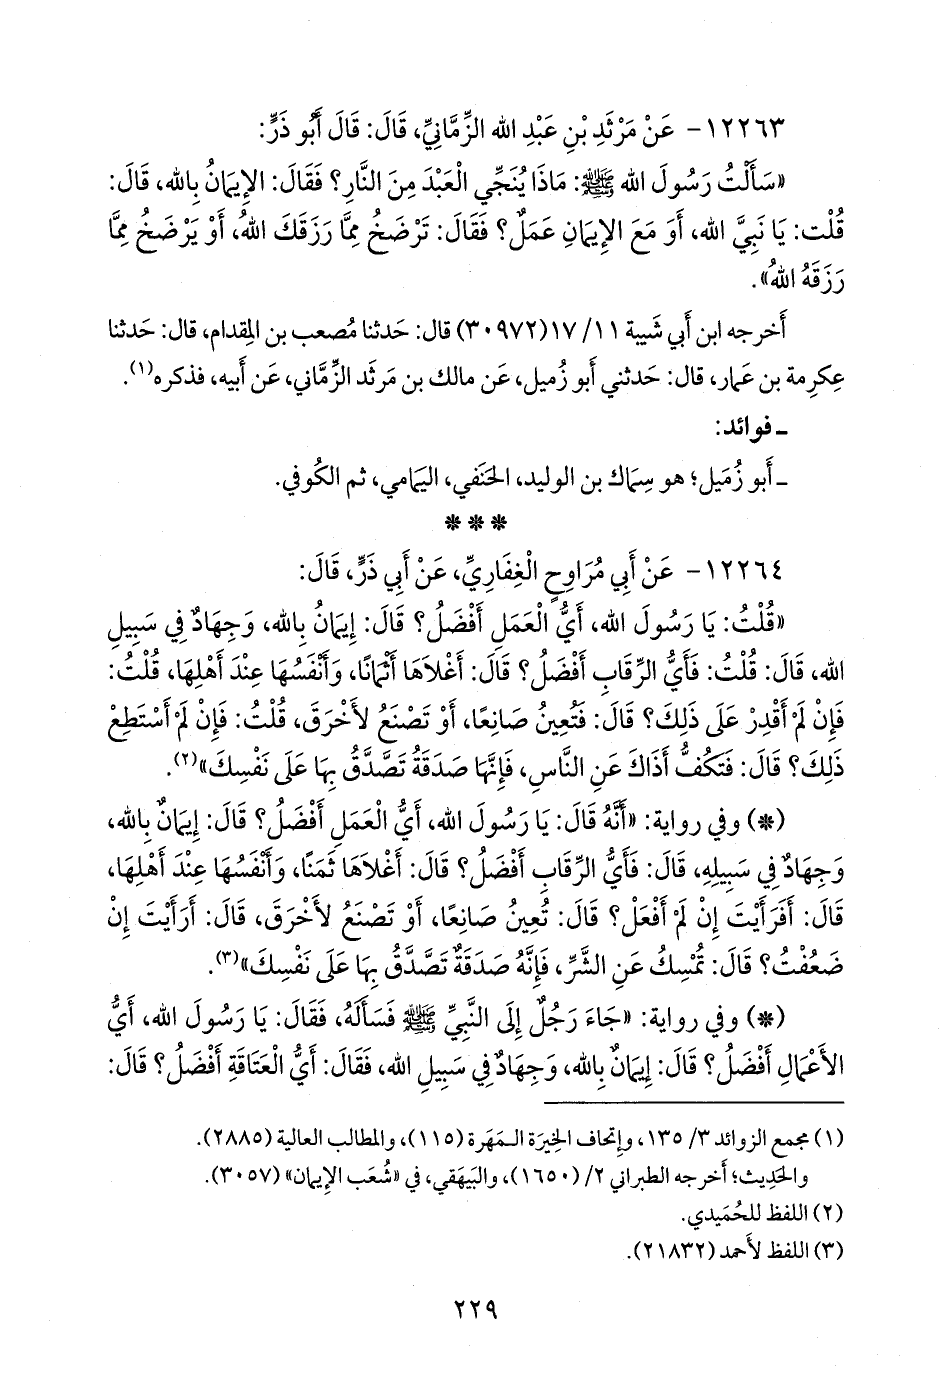 ١٢٢٦٣- عَنْ مَرْثَدِ بْنِ عَبْدِ الله الزِّمَّانِيِّ، قَالَ: قَالَ أَبُو ذَرٍّ:
«سَأَلْتُ رَسُولَ الله ﷺ: مَاذَا يُنَجِّي الْعَبْدَ مِنَ النَّارِ؟ فَقَالَ: الإِيمَانُ بِالله، قَالَ:
قُلْت: يَا نَبِيَّ الله، أَوَ مَعَ الإِيمَانِ عَمَلٌ؟ فَقَالَ: تَرْضَخُ مِمَّا رَزَقَكَ اللهُ، أَوْ يَرْضَخُ مِمَّا
رَزَقَهُ اللهُ».
أَخرجه ابن أَبي شَيبة ١١/ ١٧(٣٠٩٧٢) قال: حَدثنا مُصعب بن المِقدام، قال: حَدثنا
عِكرِمة بن عَمار، قال: حَدثني أَبو زُميل، عَن مالك بن مَرثَد الزِّمَّاني، عَن أَبيه، فذكره(١).
ـ فوائد:
ـ أَبو زُمَيل؛ هو سِمَاك بن الوليد، الحَنَفي، اليمامي، ثم الكُوفي.
* * *
١٢٢٦٤- عَنْ أَبِي مُرَاوِحٍ الْغِفَارِيِّ، عَنْ أَبِي ذَرٍّ، قَالَ:
«قُلْتُ: يَا رَسُولَ الله، أَيُّ الْعَمَلِ أَفْضَلُ؟ قَالَ: إِيمَانٌ بِالله، وَجِهَادٌ فِي سَبِيلِ
الله، قَالَ: قُلْتُ: فَأَيُّ الرِّقَابِ أَفْضَلُ؟ قَالَ: أَغْلاَهَا أَثْمَانًا، وَأَنْفَسُهَا عِنْدَ أَهْلِهَا، قُلْتُ:
فَإِنْ لَمْ أَقْدِرْ عَلَى ذَلِكَ؟ قَالَ: فَتُعِينُ صَانِعًا، أَوْ تَصْنَعُ لأَخْرَقَ، قُلْتُ: فَإِنْ لَمْ أَسْتَطِعْ
ذَلِكَ؟ قَالَ: فَتَكُفُّ أَذَاكَ عَنِ النَّاسِ، فَإِنَّهَا صَدَقَةٌ تَصَّدَّقُ بِهَا عَلَى نَفْسِكَ»(٢).
(*) وفي رواية: «أَنَّهُ قَالَ: يَا رَسُولَ الله، أَيُّ الْعَمَلِ أَفْضَلُ؟ قَالَ: إِيمَانٌ بِالله،
وَجِهَادٌ فِي سَبِيلِهِ، قَالَ: فَأَيُّ الرِّقَابِ أَفْضَلُ؟ قَالَ: أَغْلاَهَا ثَمَنًا، وَأَنْفَسُهَا عِنْدَ أَهْلِهَا،
قَالَ: أَفَرَأَيْتَ إِنْ لَمْ أَفْعَلْ؟ قَالَ: تُعِينُ صَانِعًا، أَوْ تَصْنَعُ لأَخْرَقَ، قَالَ: أَرَأَيْتَ إِنْ
ضَعُفْتُ؟ قَالَ: تُمْسِكُ عَنِ الشَّرِّ، فَإِنَّهُ صَدَقَةٌ تَصَّدَّقُ بِهَا عَلَى نَفْسِكَ»(٣).
(*) وفي رواية: «جَاءَ رَجُلٌ إِلَى النَّبِيِّ ﷺ فَسَأَلَهُ، فَقَالَ: يَا رَسُولَ الله، أَيُّ
الأَعْمَالِ أَفْضَلُ؟ قَالَ: إِيمَانٌ بِالله، وَجِهَادٌ فِي سَبِيلِ الله، فَقَالَ: أَيُّ الْعَتَاقَةِ أَفْضَلُ؟ قَالَ:
(١) مجمع الزوائد ٣/ ١٣٥، وإتحاف الخِيرَة المَهَرة (١١٥)، والمطالب العالية (٢٨٨٥).
والحَدِيث؛ أخرجه الطبراني ٢/ (١٦٥٠)، والبَيهَقي، في «شُعَب الإيمان» (٣٠٥٧).
(٢) اللفظ للحُمَيدي.
(٣) اللفظ لأحمد (٢١٨٣٢).
٢٢٩